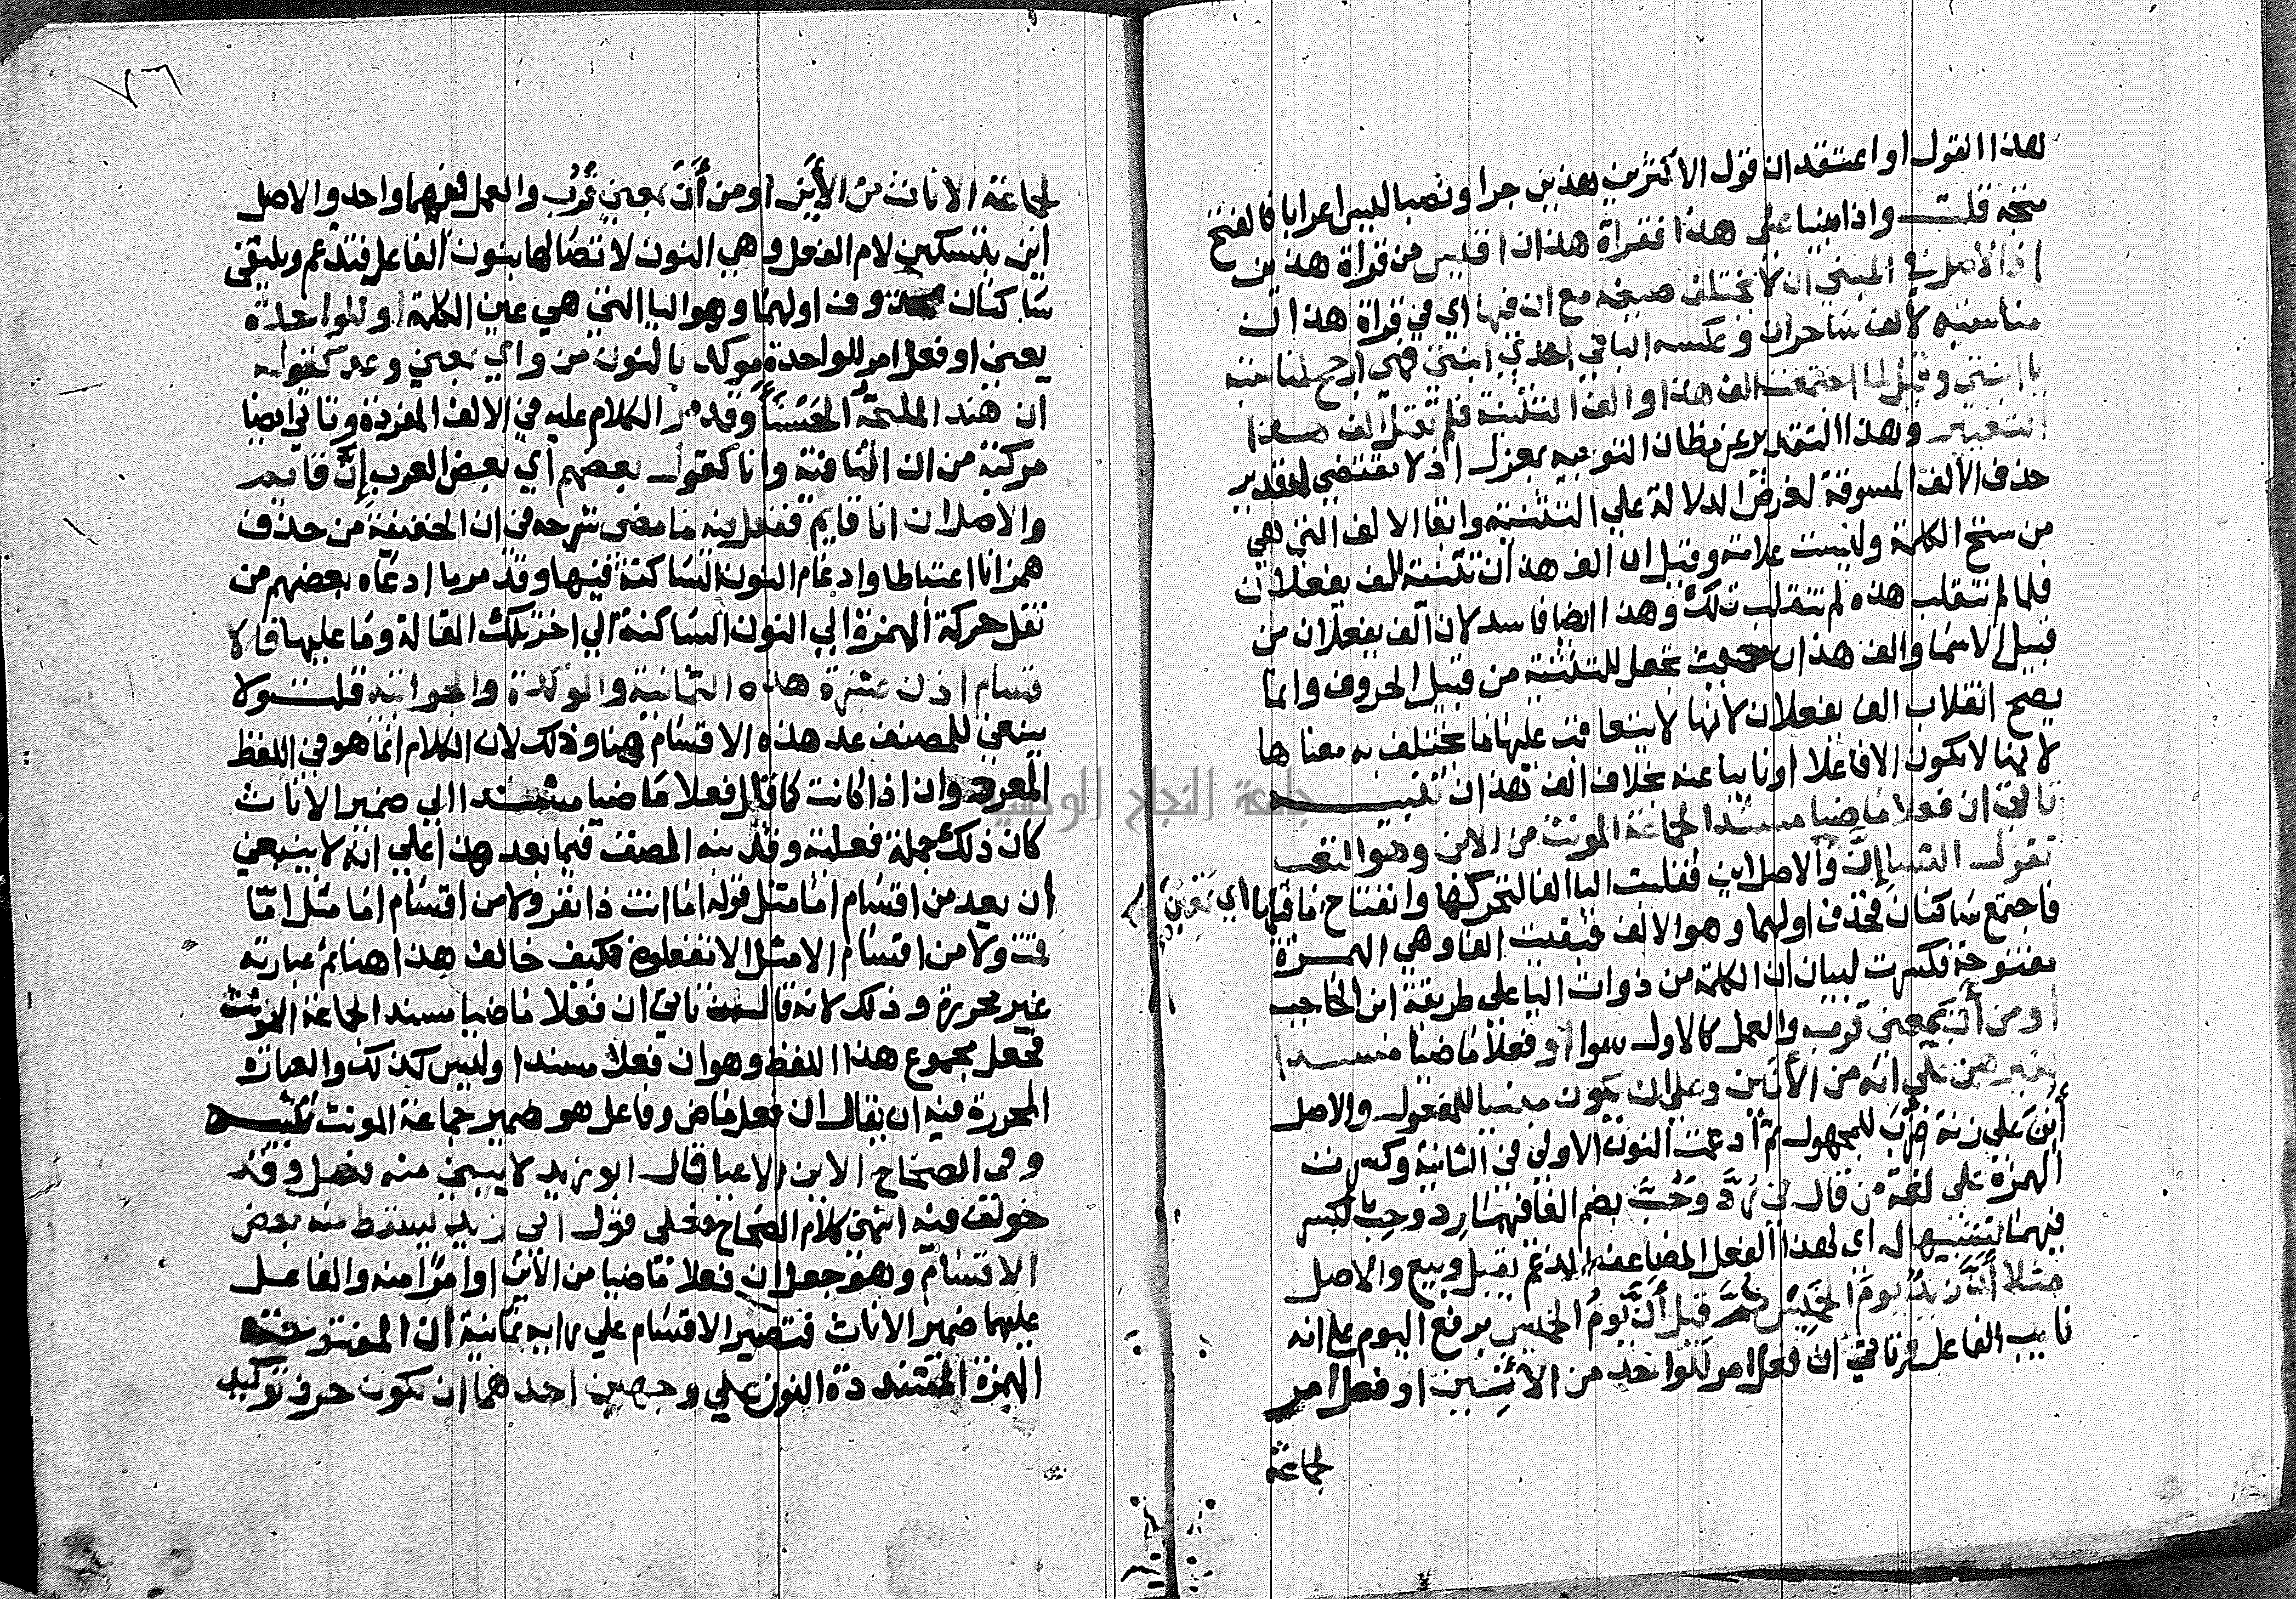 لهذا القول او اعتقد ان قول الاكثرين هذين جرا ونصبا ليس اعرابا فالفتح
متجه قلت واذا بنينا على هذا فقراة هذان اقيس من قراة هذين
اذ الاصل في المبني ان لا يختلف صيغه مع ان فيها اي في قراة هذان
مناسبة لالف ساحران وعكسه الباقي احدى ابنتي فهي ارجح لمناسبة
يا ابنتي وقيل لما اجتمعت الف هذا والف التثنية فلم تقبل الف هذا
التغيير وهذا التقدير عن مظان التوجيه بمعزل اذ لا يقتضي لتقدير
حذف الالف المسوقة لغرض الدلالة علي التثنية وابقا الالف التي هي
من سنخ الكلمة وليست علامة وقيل ان الف هذان تثنية الف يفعلان
فلما لم تنقلب هذه لم تنقلب تلك وهذا ايضا فاسد لان الف يفعلان من
قبيل الاسما والف هذان تجعل للتثنية من قبيل الحروف وانما
يصح انقلاب الف يفعلان لانها لا يتعاقب عليها ما يختلف به معناها
لانها لا يكون الا فاعلا او نايبا عنه بخلاف الف هذان تنبيه
تاتي ان فعلا ماضيا مسندا لجماعة المونث من الاين وهو التعب
تقول النسا إنَّ والاصل اين فقلبت اليا الفا لتحركها وانفتاح ما قبلها اي
فاجتمع ساكنان فحذف اولهما وهو الالف فبقيت الفا وهي الهمزة
مفتوحة فكسرت لبيان ان الكلمة من ذوات اليا على طريقة ابن الحاجب
او من أنَّ بمعنى قرب والعمل كالاول سوا او فعلا ماضيا مسندا
لغيرهن علي انه من الأنين وعلى ان يكون مبنيا للمفعول والاصل
أُنِنَ علي زنة ضرب للمجهول ثم ادغمت النون الاولي في الثانية وكسرت
الهمزة على لغة من قال في رُدَّ وحُبَّ بضم الفا فيهما رِد وحِب بالكسر
فيهما تشبيها له اي لهذا الفعل المضاعف المدغم بقيل وبيع والاصل
مثلا أَنَّ زيدٌ يومَ الخميس ثم قيل إِنَّ يومُ الخميس برفع اليوم على انه
نايب الفاعل وتاتي ان فعل امر للواحد من الأنين او فعل امر
لجماعة
٧٦
لجماعة الاناث من الأين او من أنَّ بمعنى قرب والعمل فيهما واحد والاصل
اين بتسكين لام الفعل وهي النون لاتصالها بنون الفاعل فتدغم ويلتقي
ساكنان فحذف اولهما وهو اليا التي هي عين الكلمة او للواحدة
يعني او فعل امر للواحدة موكد بالنون من واي بمعني وعد كقوله
ان هند المليحةُ الحسنآءَ وقد مر الكلام عليه في الالف المفردة وتاتي ايضا
مركبة من ان النافية وانا كقول بعضهم اي بعض العرب إنَّ قايم
والاصل ان انا قايم ففعل به ما مضى شرحه في ان المخففة من حذف
همز انا اعتباطا وادغام النون الساكنة فيها وقد مر ما ادعاه بعضهم من
نقل حركة الهمزة الي النون الساكنة الي اخر تلك المقالة وما عليها فالا
قسام اذن عشرة هذه الثمانية والموكدة والجوابية قلت ولا
ينبغي للمصنف عد هذه الاقسام هنا وذلك لان الكلام انما هو في اللفظ
المفرد وان اذا كانت كما قال فعلا ماضيا مسندا الي ضمير الاناث
كان ذلك جملة فعلية وقد نبه المصنف فيما بعد هذا علي انه لا ينبغي
ان يعد من اقسام اما مثل قوله اما انت ذا نفر ولا من اقسام اما مثل امّا
قمت ولا من اقسام الا مثل الا تفعلوه فكيف خالف هذا هنا ثم عبارته
غير محررة وذلك لانه قال تاتي ان فعلا ماضيا مسندا لجماعة المونث
فجعل مجموع هذا اللفظ وهو ان فعلا مسندا وليس كذلك والعبارة
المحررة فيه ان يقال ان فعل ماض وفاعل هو ضمير جماعة المونث تنبيه
وفي الصحاح الاين الاعيا قال ابو زيد لا يبنى منه فعل وقد
خولف فيه انتهى كلام الصحاح فعلى قول ابي زيد يسقط منه بعض
الاقسام وهو جعل ان فعلا ماضيا من الأين او امرا منه والفاعل
عليهما ضمير الاناث فتصير الاقسام علي رايه ثمانية ان المفتوحة
الهمزة المشددة النون علي وجهين احدهما ان تكون حرف توكيد
جامعة النجاح الوطنية